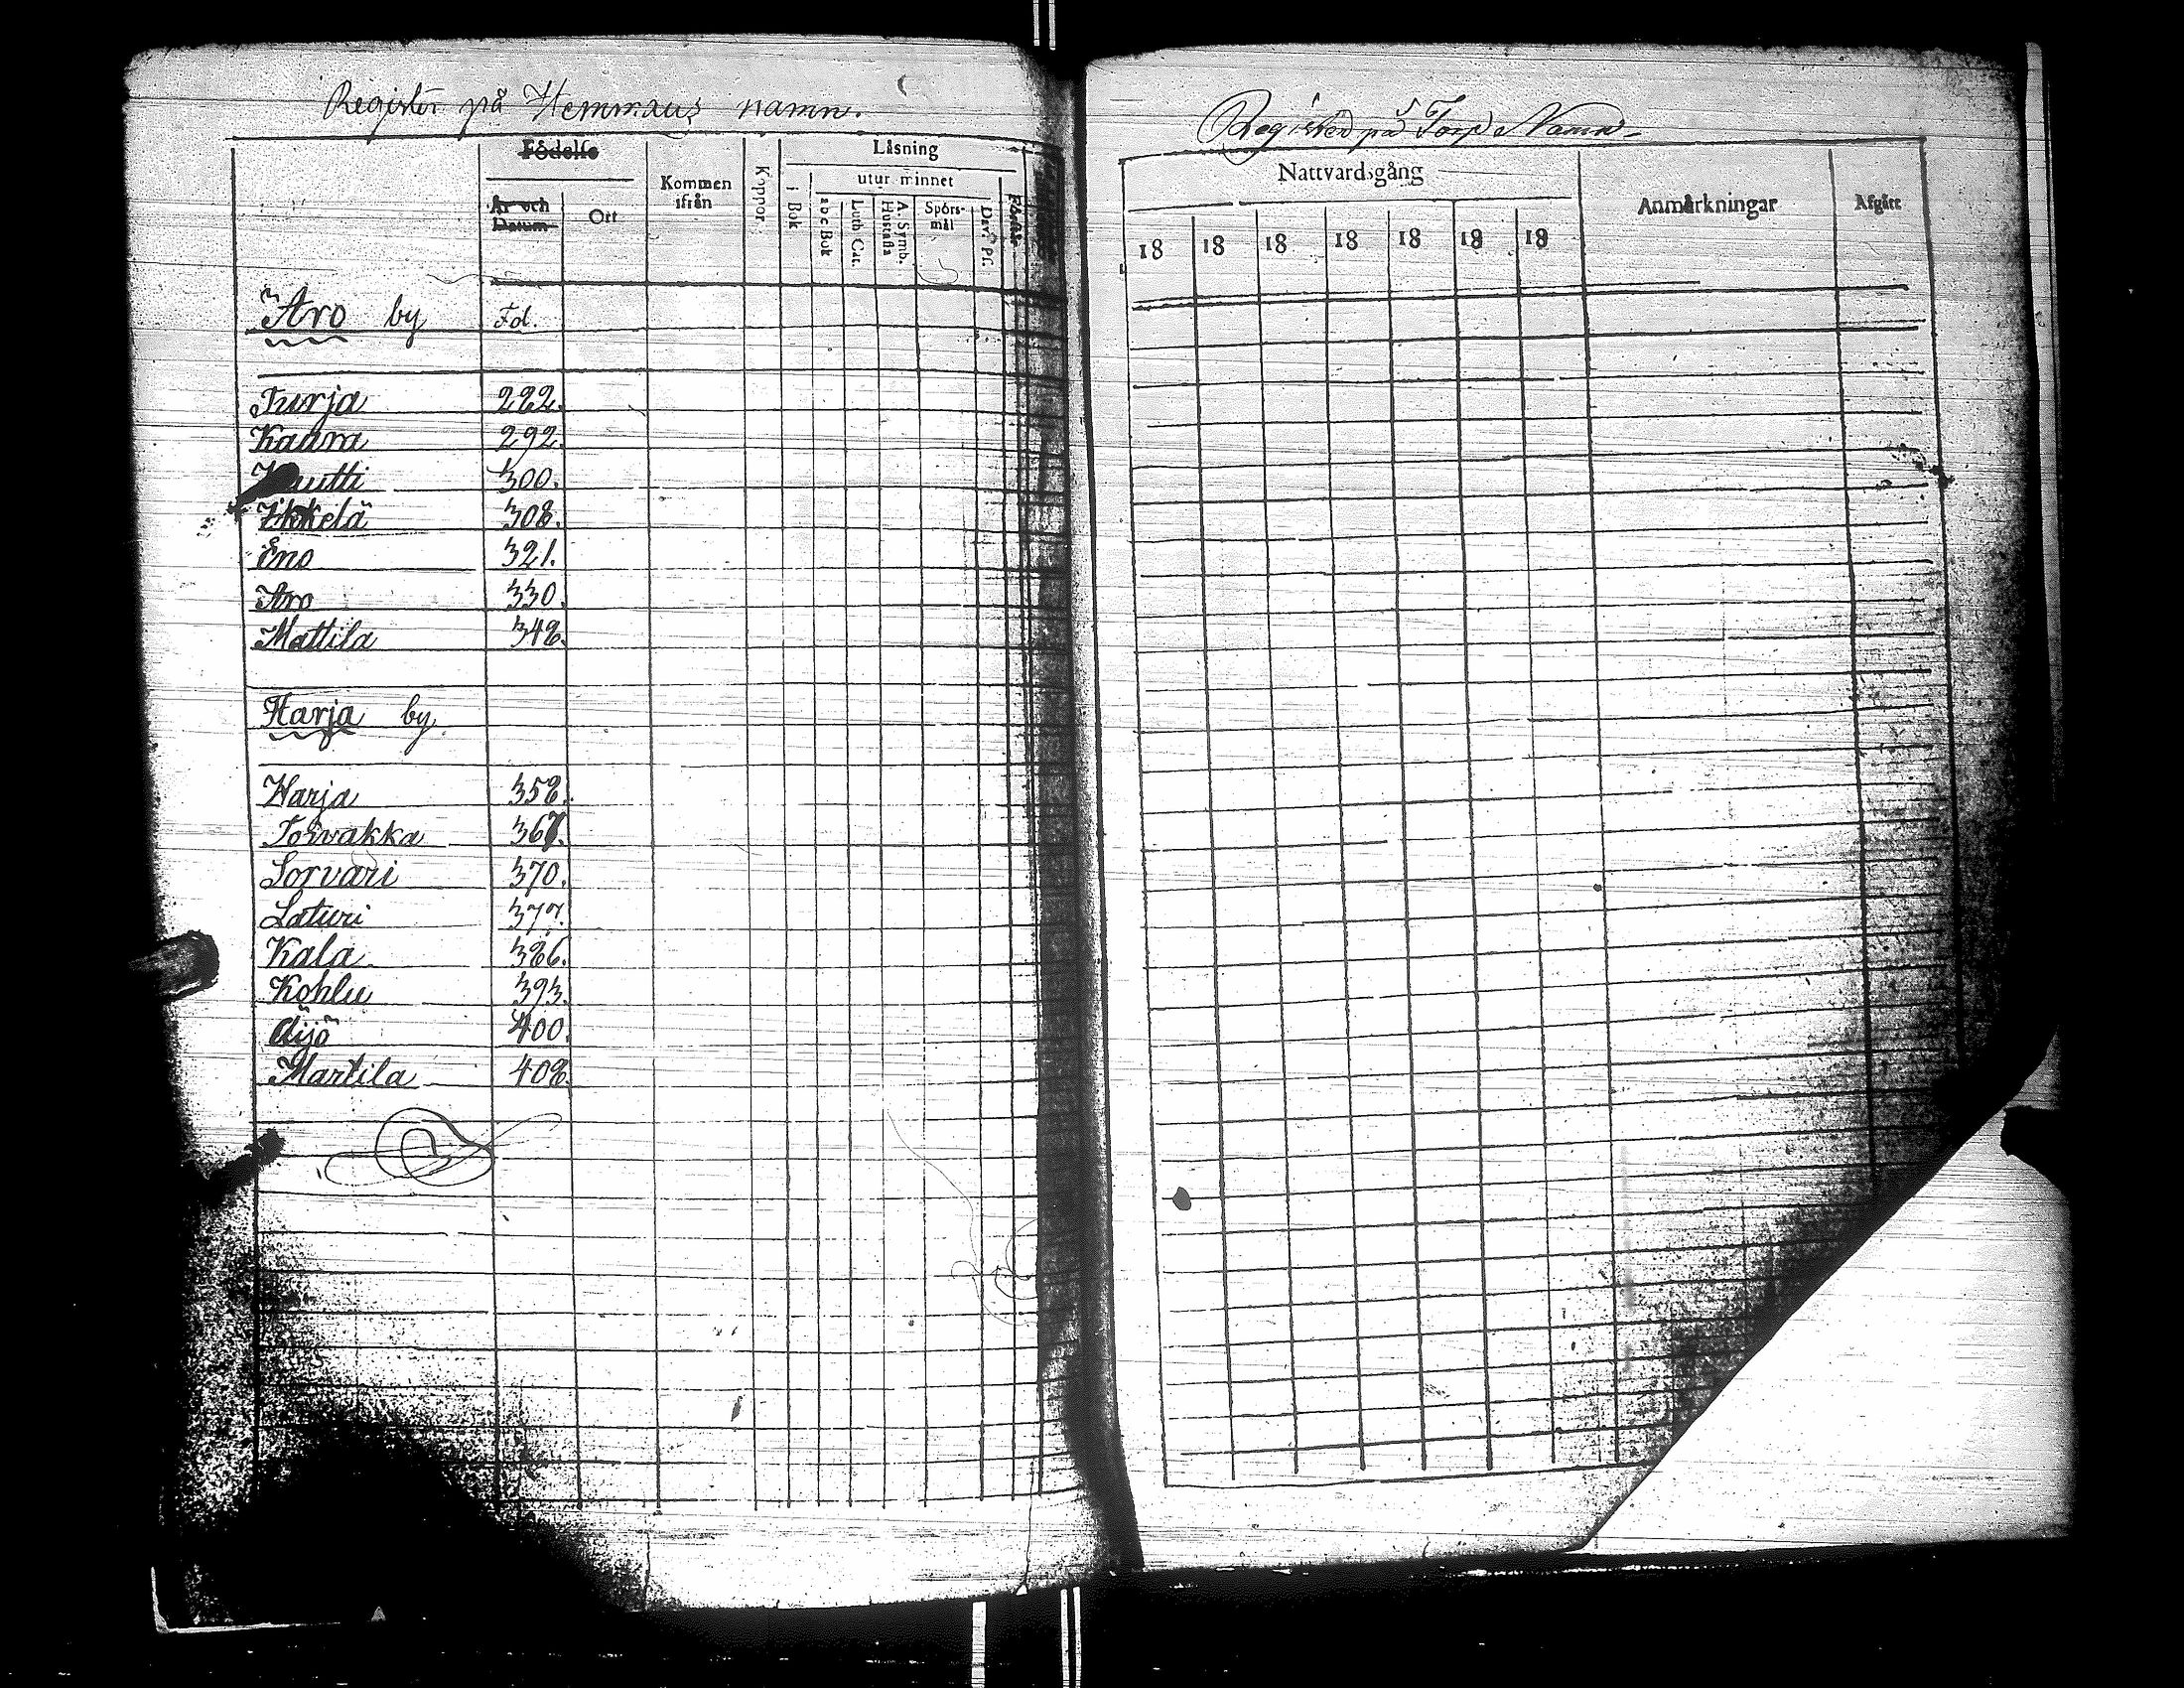 Register på Hemmans namn.
Födelse
År och Datum
Ort
Kommen ifrån
Koppor
Läsning
i Bok
utur minnet
abc Bok
Luth. Cat.
A. Symb. Hustafla
Spörs-mål
Dav. Ps.
Aro by Fol.
Turja 282.
Kaura 292.
300.
308.
Eno 321.
Aro 330.
Mattila 348.
Harja by
Harja 358.
Torvakka 367.
Sorvari 370.
Laturi 377.
Kala 386.
Kohlu 393.
Äijö 400.
Martila 408.
Register på Torp Namn.
Nattvardsgång
Anmärkningar
Afgått
18 18 18 18 18 18 18